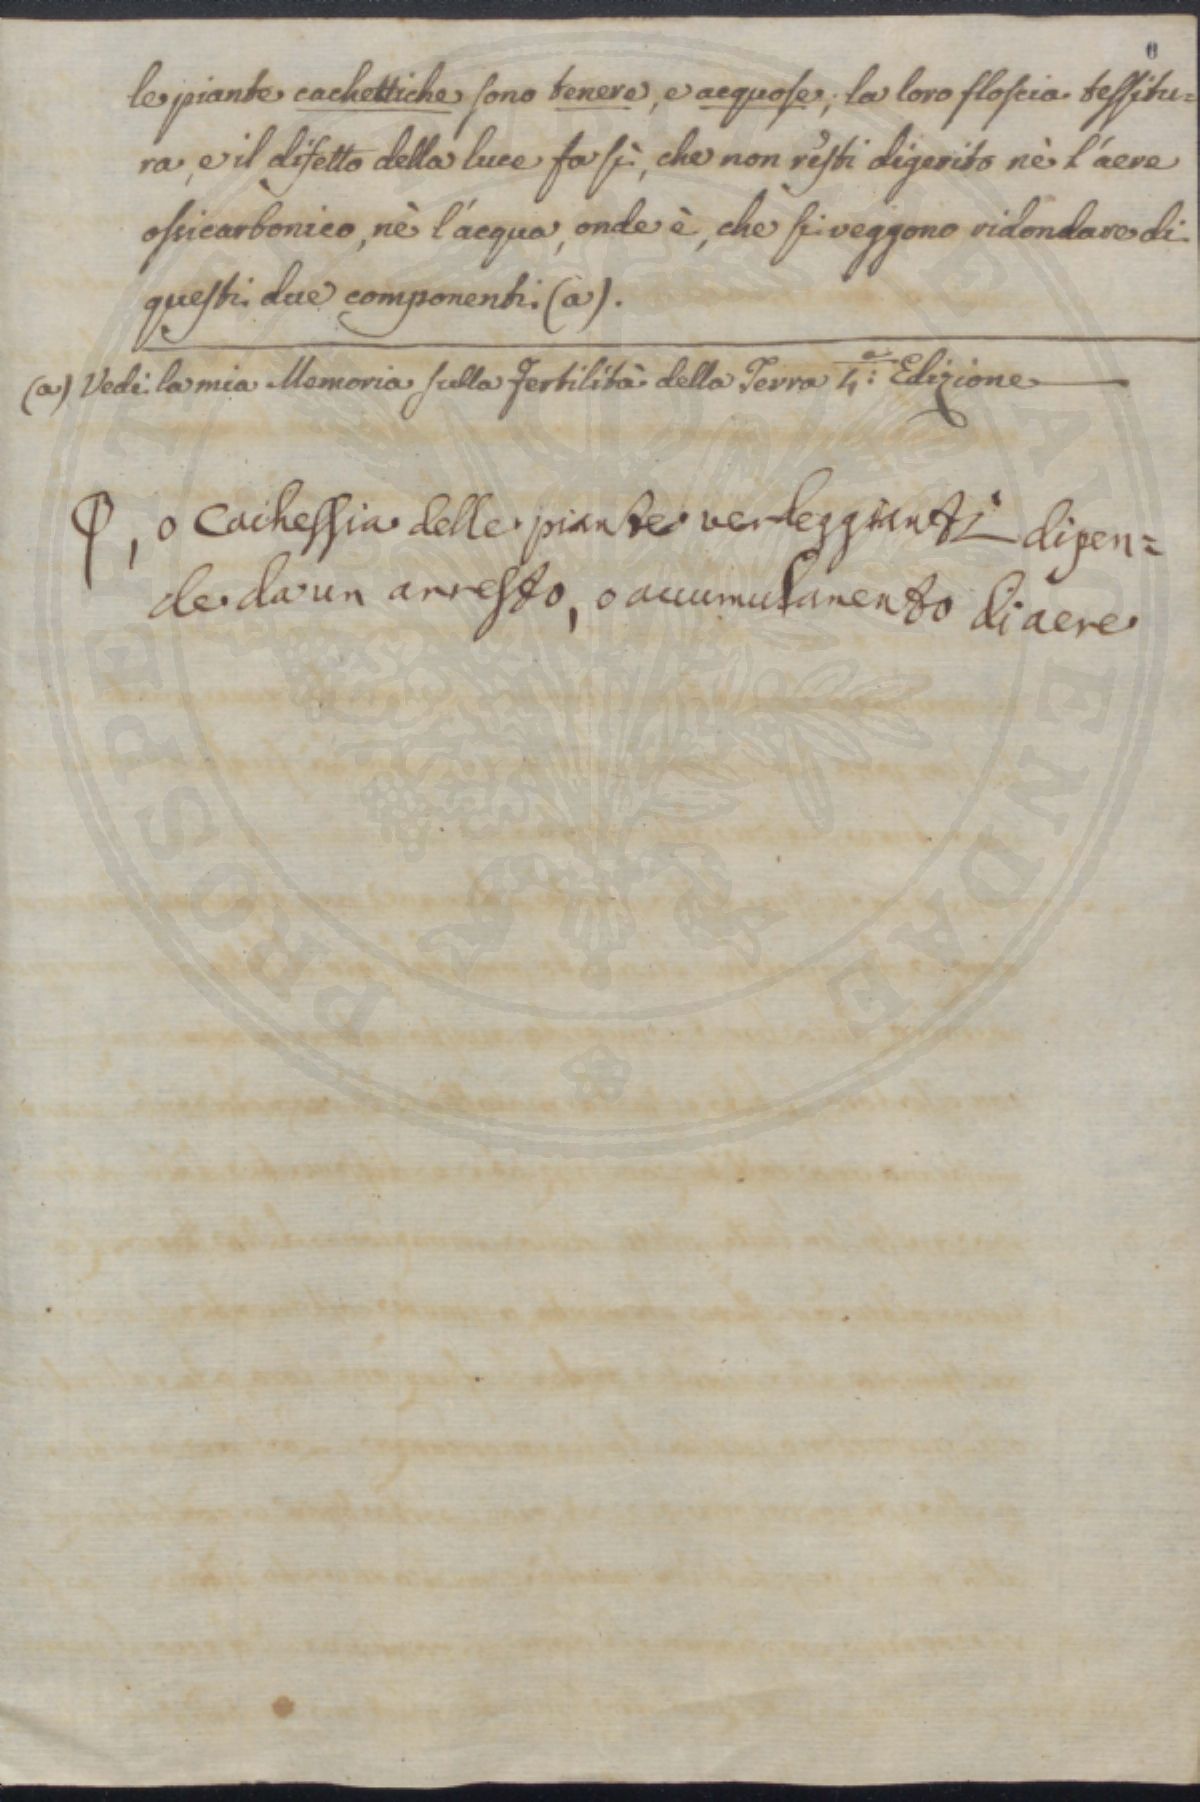 le piante cachettiche sono tenere, e acquose; la loro floscia tessitu=
ra, e il difetto della luce fa sì, che non resti digerito nè l'aere
ossicarbonico, nè l'acqua, onde è, che si veggono ridondare di
questi due componenti. (a).
(a) Vedi la mia Memoria sulla Fertilità della Terra 4.ª Edizione
, o Cachessia delle piante verdeggianti dipen=
de da un arresto, o accumulamento di aere
PROSPERITATI PUBLICAE AUGENDAE